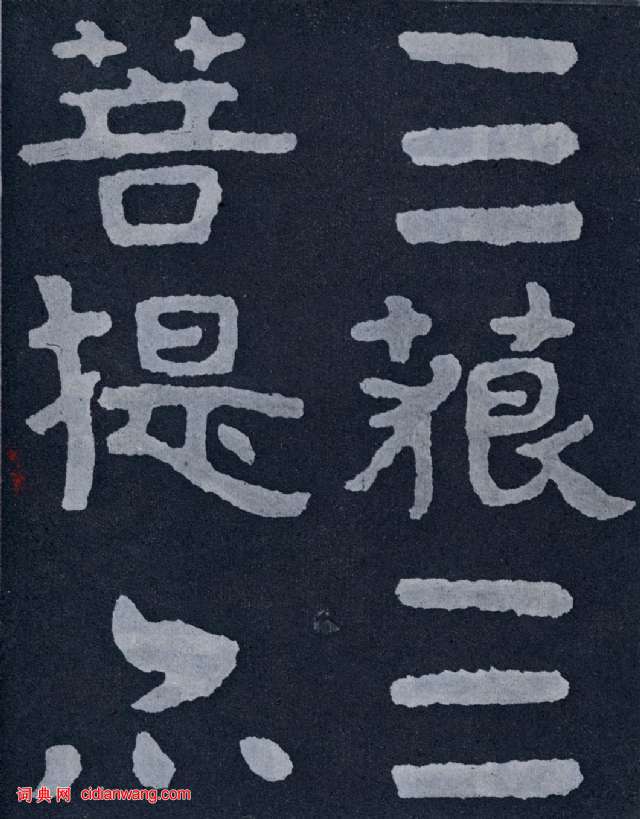 三藐三
菩提心
词典网 cidianwang.com